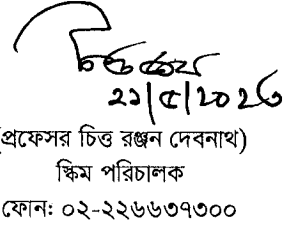 ২১/৫/২০২৩
(প্রফেসর চিত্ত রঞ্জন দেবনাথ)
স্কিম পরিচালক
ফোন: ০২-২২৬৬৩৭৩০০